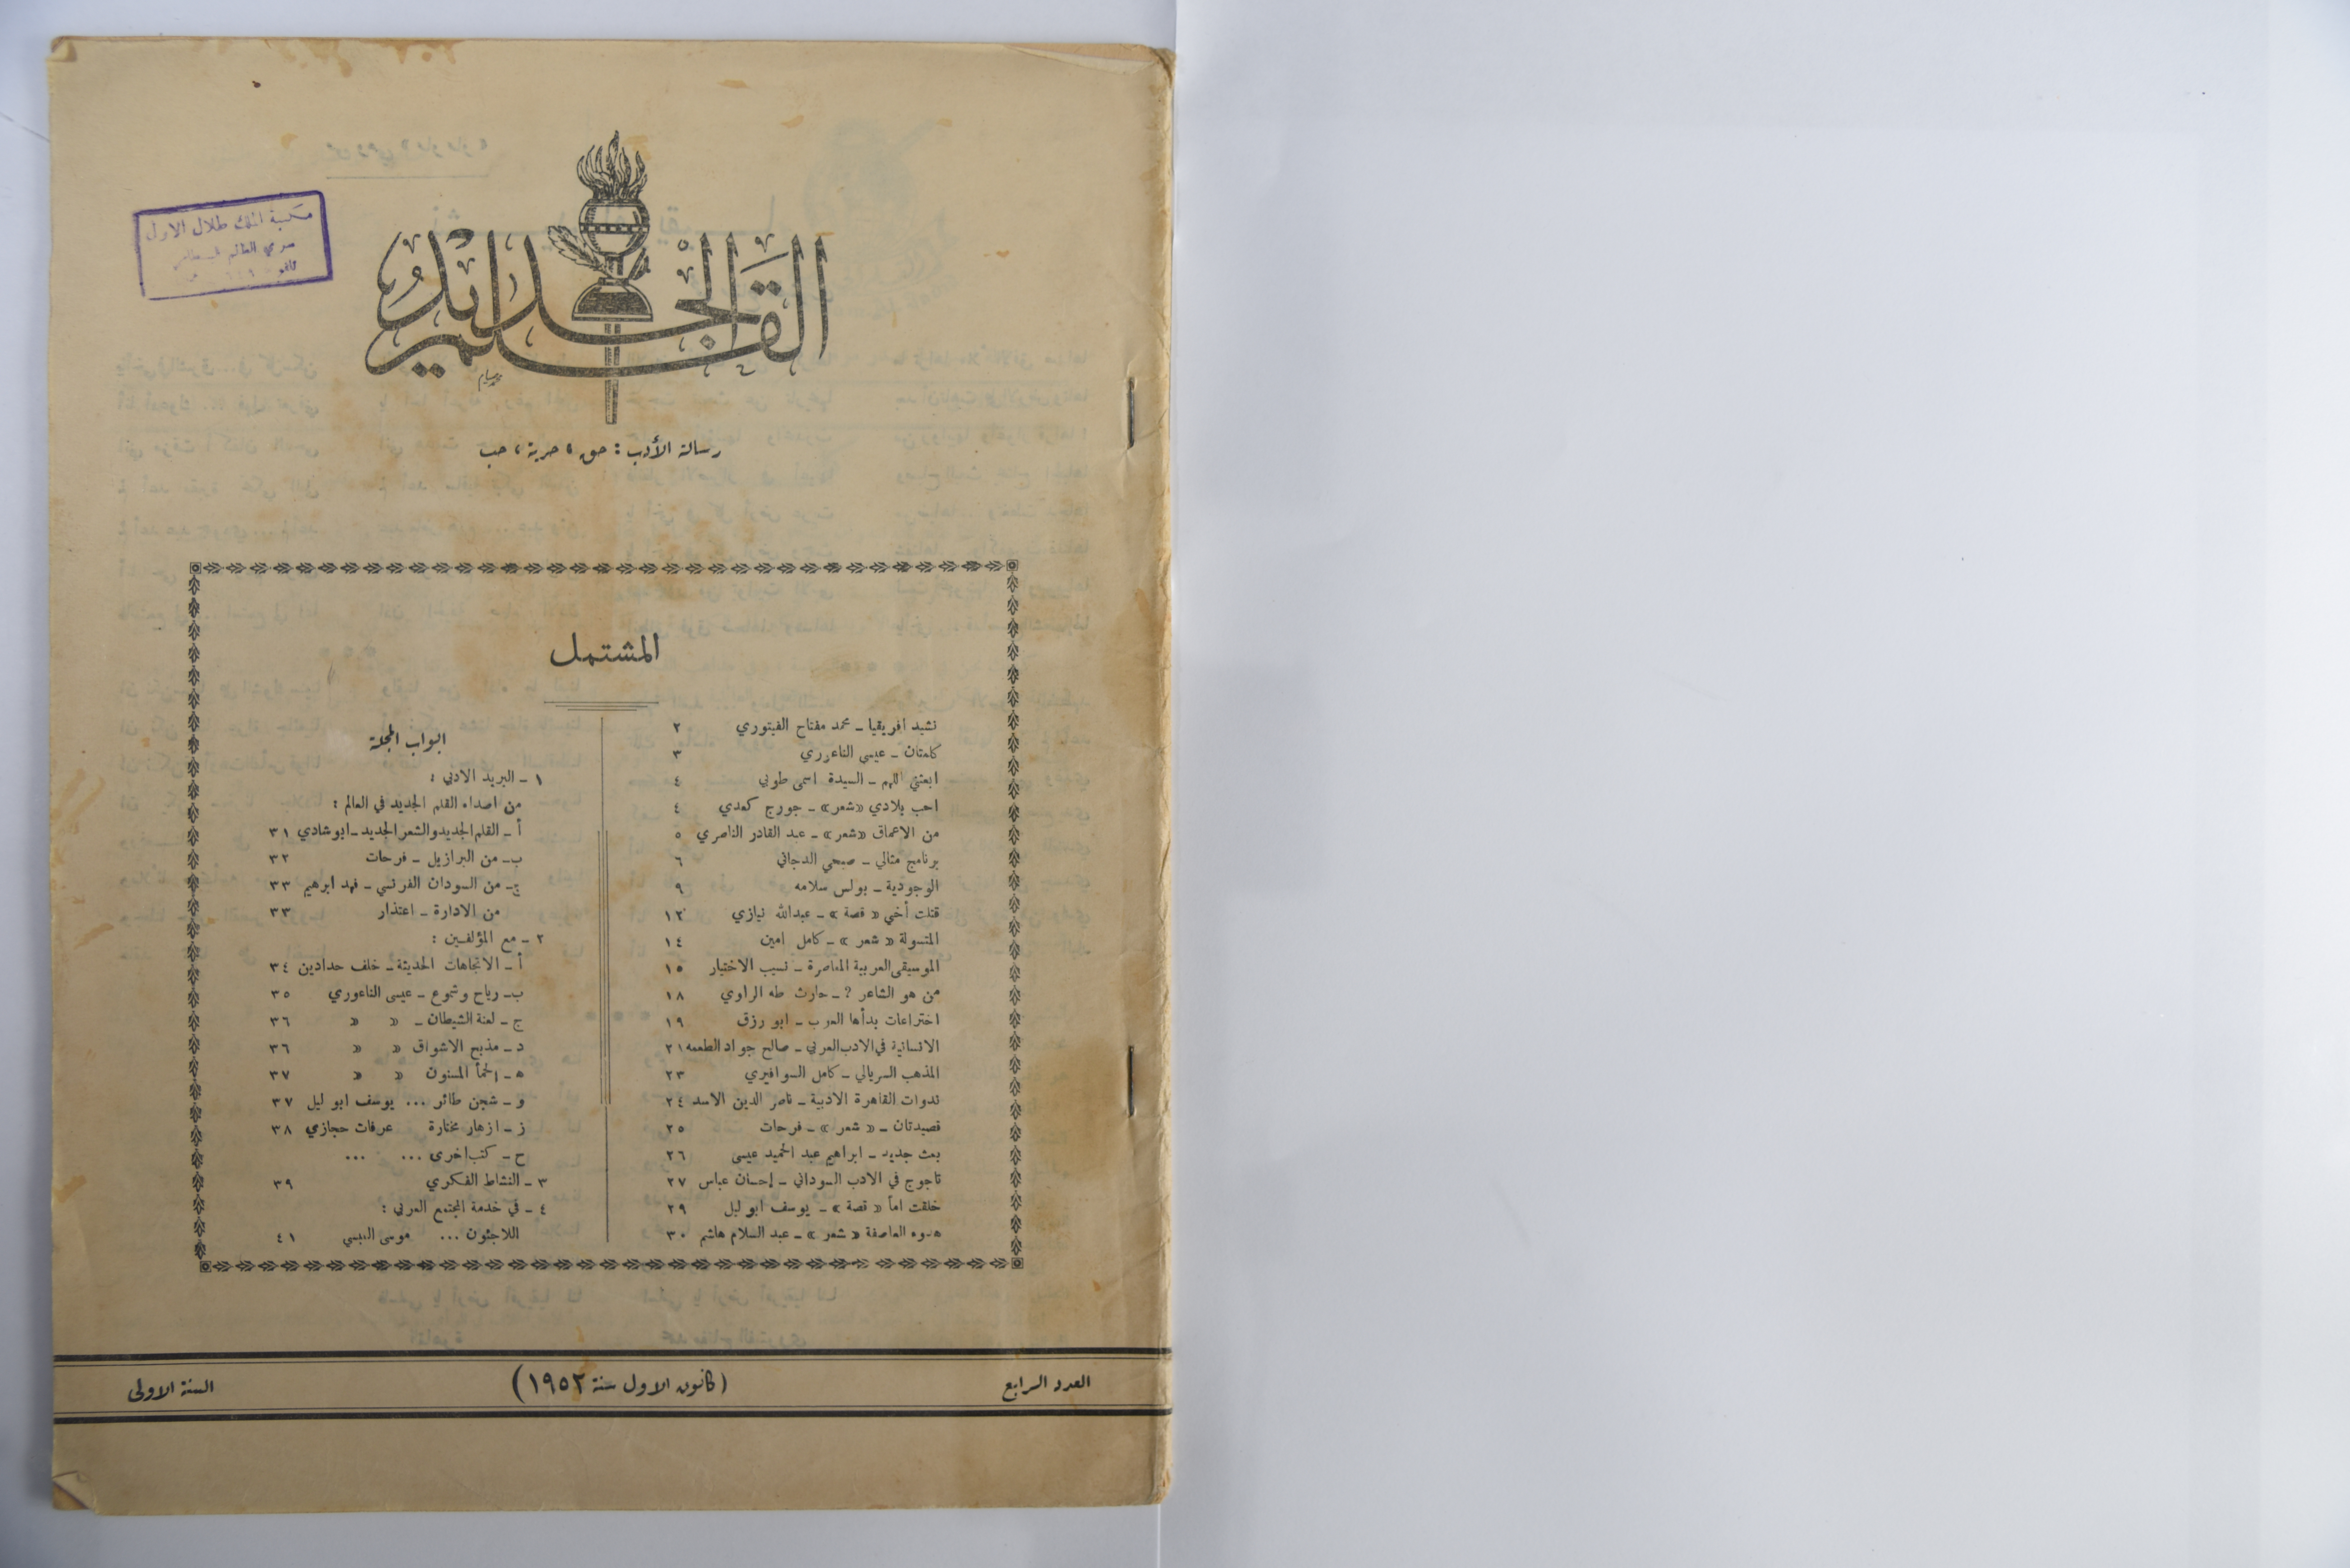 مكتبة الملك طلال الاول
القلم الجديد
رسالة الأدب : حق ، حرية ، حب
المشتمل
نشيد افريقيا ــ محمد مفتاح الفيتوري ٢
كلمتان ــ عيسى الناعوري ٣
ابعثني اللهم ــ السيدة اسمى طوبي ٤
احب بلادي «شعر» ــ جورج كعدي ٤
من الاعماق «شعر» ــ عبد القادر الناصري ٥
برنامج مثالي ــ صبحي الدجاني ٦
الوجودية ــ بولس سلامه ٩
قتلت أخي « قصة » ــ عبدالله نيازي ١٢
المتسولة « شعر » ــ كامل امين ١٤
الموسيقى العربية المعاصرة ــ نسيب الاختيار ١٥
من هو الشاعر ? ــ حارث طه الراوي ١٨
اختراعات بدأها العرب ــ ابو رزق ١٩
الانسانية في الادب العربي ــ صالح جواد الطعمه ٢١
المذهب السريالي ــ كامل السوافيري ٢٣
ندوات القاهرة الادبية ــ ناصر الدين الاسد ٢٤
قصيدتان ــ « شعر » ــ فرحات ٢٥
بعث جديد ــ ابراهيم عبد الحميد عيسى ٢٦
تاجوج في الادب السوداني ــ إحسان عباس ٢٧
خلقت اماً « قصة » ــ يوسف ابو ليل ٢٩
هدوء العاصفة « شعر » ــ عبد السلام هاشم ٣٠
ابواب المجلة
١ ــ البريد الادبي :
من اصداء القلم الجديد في العالم :
أ ــ القلم الجديد والشعر الجديد ــ ابو شادي ٣١
ب ــ من البرازيل ــ فرحات ٣٢
ج ــ من السودان الفرنسي ــ فهد ابرهيم ٣٣
من الادارة ــ اعتذار ٣٣
٢ ــ مع المؤلفين :
أ ــ الاتجاهات الحديثة ــ خلف حدادين ٣٤
ب ــ رياح وشموع ــ عيسى الناعوري ٣٥
ج ــ لعنة الشيطان ــ « « ٣٦
د ــ مذبح الاشواق « « ٣٦
ه ــ الحمأ المسنون « « ٣٧
و ــ شجن طائر ... يوسف ابو ليل ٣٧
ز ــ ازهار مختارة عرفات حجازي ٣٨
ح ــ كتب اخرى ... ...
٣ ــ النشاط الفكري ٣٩
٤ ــ في خدمة المجتمع العربي :
اللاجئون ... موسى العبسي ٤١
العدد الرابع
(كانون الاول سنة ١٩٥٢)
السنة الاولى